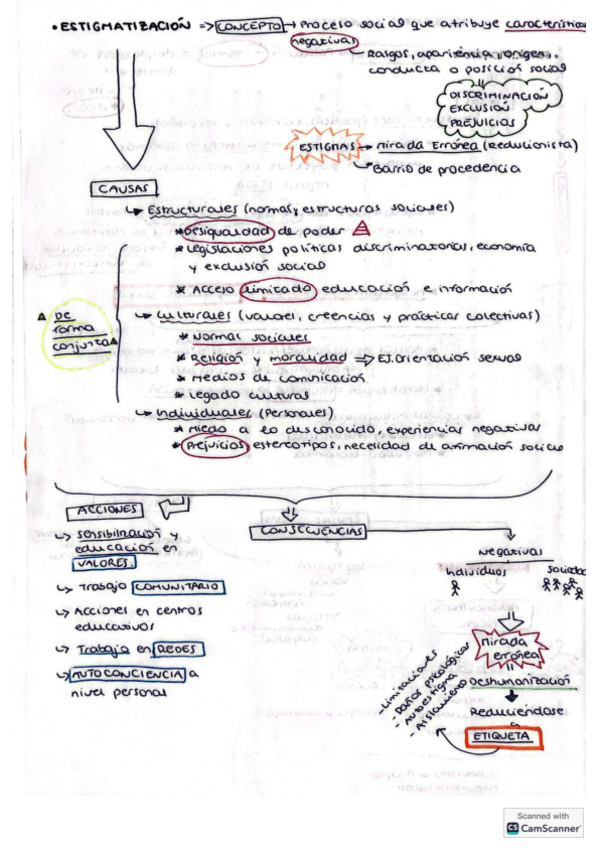 • ESTIGMATIZACIÓN => CONCEPTO → Proceso social que atribuye características
negativas
Rasgos, apariencia, origen,
conducta o posición social
DISCRIMINACIÓN
EXCLUSIÓN
PREJUICIOS
ESTIGMAS → Mirada Errónea (Reduccionista)
Barrio de procedencia
CAUSAS
↳ Estructurales (normas y estructuras sociales)
* Desigualdad de poder
* Legislaciones políticas discriminatorias, economía
y exclusión social
* Acceso limitado educación e información
De
forma
conjunta
↳ Culturales (valores, creencias y prácticas colectivas)
* Normas sociales
* Religión y moralidad => EJ. Orientación sexual
* Medios de comunicación
* Legado cultural
↳ Individuales (Personales)
* Miedo a lo desconocido, experiencias negativas
* Prejuicios, estereotipos, necesidad de afirmación social
ACCIONES
↳ Sensibilización y
educación en
VALORES.
↳ Trabajo COMUNITARIO
↳ Acciones en centros
educativos
↳ Trabajo en REDES
↳ AUTOCONCIENCIA a
nivel personal
CONSECUENCIAS
Negativas
Individuos
Sociedad
Mirada
errónea
Deshumanización
Reduciéndose
a
ETIQUETA
- Limitaciones
- Daños psicológicos
- Autoestigma
- Aislamiento
Scanned with
CS CamScanner